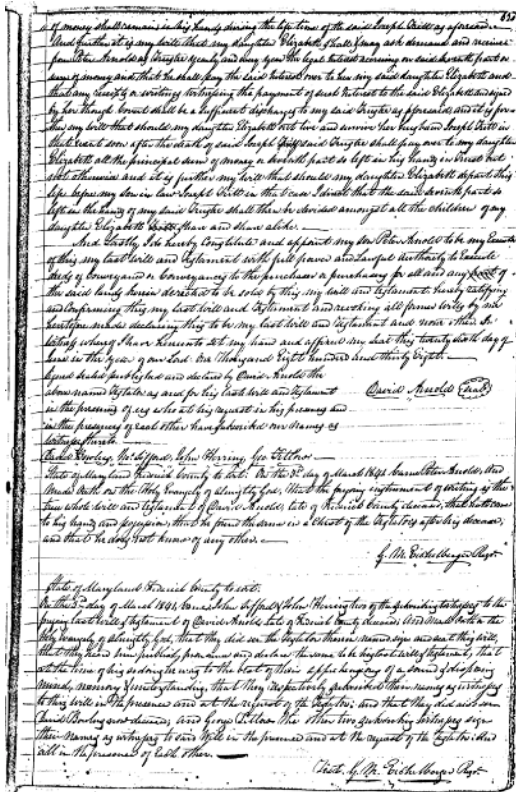 of money shall remain in his hands during the life time of the said Joseph as aforesaid
And further it is my will that my daughter Elizabeth shall & may ask demand and receive
from Peter Arnold as Trustee yearly and every year the legal interest accruing on said seventh part or
sum of money and that he shall pay the said Interest over to her my said daughter Elizabeth and
that any receipts or writings witnessing the payment of such Interest to the said Elizabeth and signed
by her though Covert shall be a sufficient discharge to my said Trustee as aforesaid, and it is fur
ther my will that should my daughter Elizabeth out live and survive her husband Joseph in
that event soon after the death of said Joseph said Trustee shall pay over to my daughter
Elizabeth all the principal sum of money or seventh part so left in his hands in Trust but
not otherwise and it is further my will that should my daughter Elizabeth depart this
life before my son in law Joseph in that case I direct that the said seventh part so
left in the hands of my said Trustee shall then be divided amongst all the children of my
daughter Elizabeth share and share alike.
And Lastly, I do hereby Constitute and appoint my son Peter Arnold to be my Executor
of this my last will and Testament with full power and Lawful authority to Execute
deeds of Conveyance or Conveyances to the purchaser or purchasers for all and any part of
the said lands herein directed to be sold by this my will and testament, hereby ratifying
and Confirming this my last will and Testament and revoking all former wills by me
heretofore made declaring this to be my last will and Testament and none other In
witness whereof I have hereunto set my hand and affixed my seal this twenty sixth day of
in the year of our Lord One Thousand Eight hundred and thirty Eight.
Signed sealed published and declared by David Arnold the
above named Testator as and for his last will and Testament
in the presence of us who at his request in his presence and
in the presence of each other have subscribed our names as
witnesses thereto.
David Arnold (seal)
David Bowlus, Jno Sifford, John Herring, Geo
State of Maryland Frederick County to wit. On the 3d day of March 1841 came Peter Arnold, and
made Oath on the Holy Evangely of Almighty God, that the foregoing instrument of writing is the
true whole will and testament of David Arnold, late of Frederick County deceased, that hath come
to his hands and possession, that he found the same in a Chest of the Testator's after his decease,
and that he does not know of any other.
G. M. Eichelberger Regr.
State of Maryland Frederick County to wit.
On the 3d day of March 1841, came John Sifford & John Herring two of the subscribing witnesses to the
foregoing last will & Testament of David Arnold late of Frederick County deceased, and made Oath on the
Holy Evangely of Almighty God, that they did see the Testator therein named sign and seal this will,
that they heard him publish, pronounce and declare the same to be his last will & Testament, that
at the time of his so doing he was to the best of their apprehension of a sound & disposing
mind, memory & understanding, that they respectively subscribed their names as witnesses
to this will in the presence and at the request of the Testator; and that they did also see
David Bowlus now deceased, and George the other two subscribing witnesses sign
their names as witnesses to said Will in the presence and at the request of the testator, and
all in the presence of each other.
Test. G. M. Eichelberger Regr.